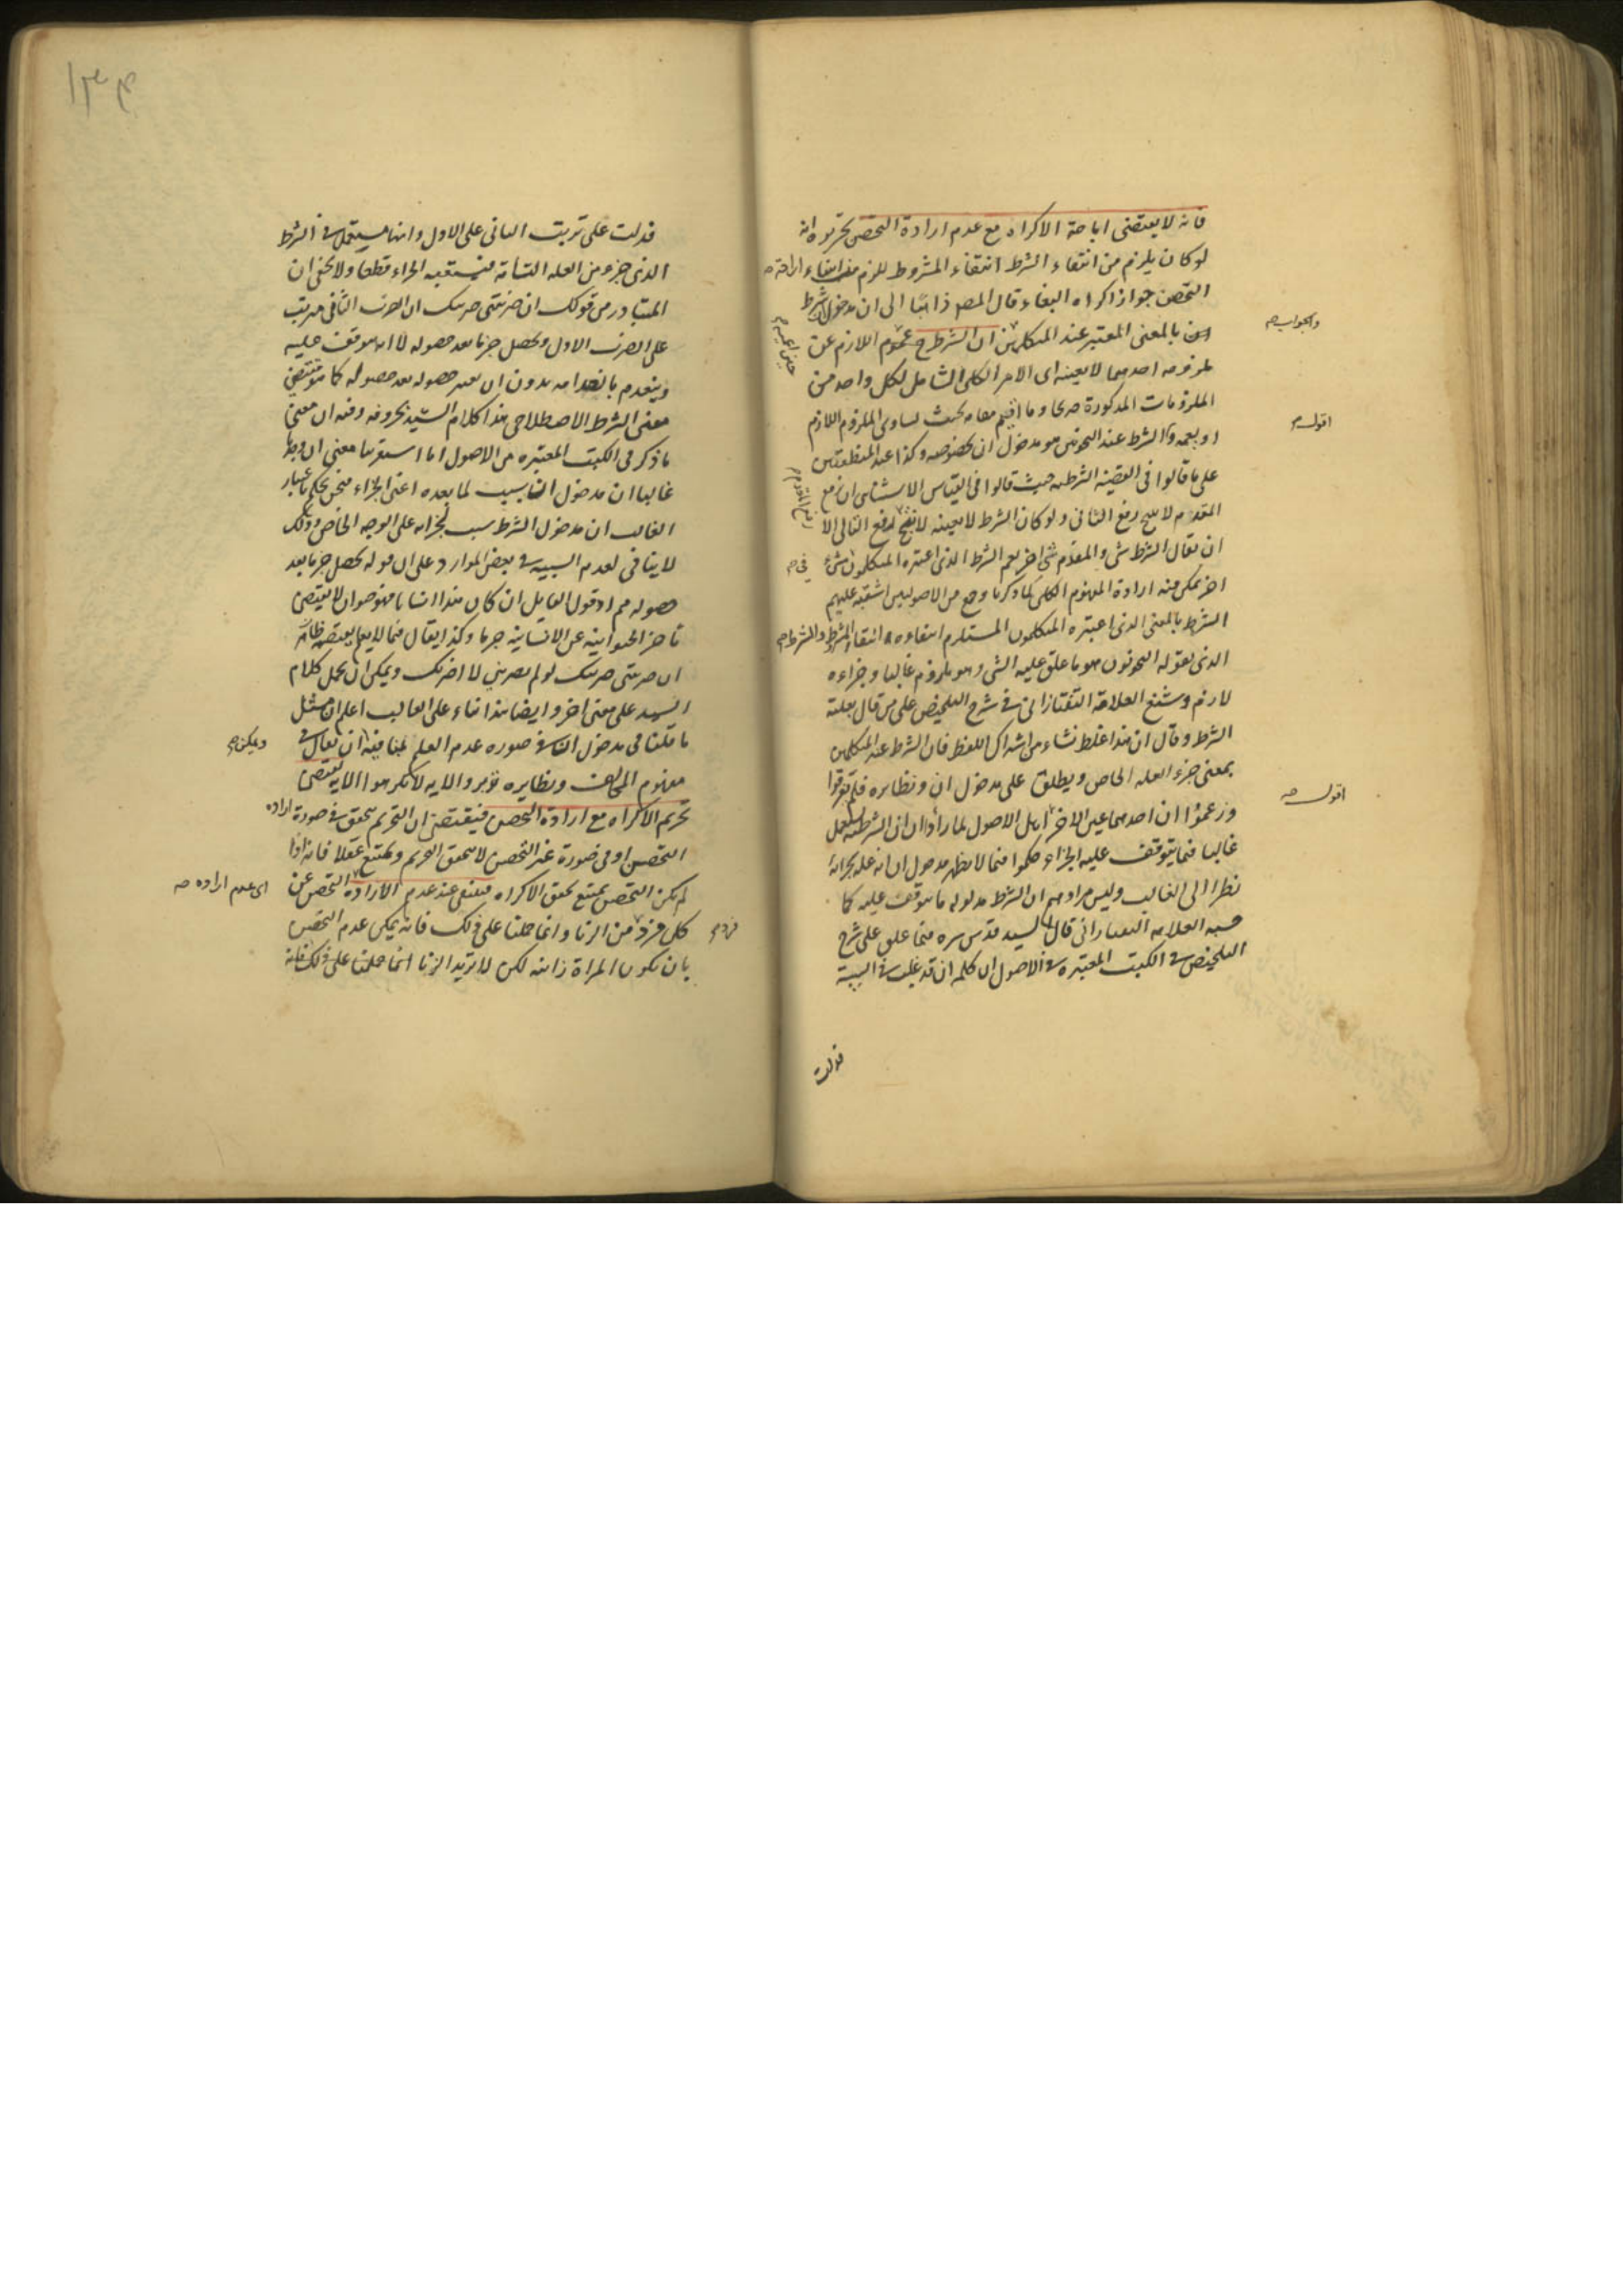 فانه لا يقتضى اباحة الاكراه مع عدم ارادة التحصن تحريره انه
لو كان يلزم من انتفاء الشرط انتفاء المشروط للزم من انتفاء ارادة
التحصن جواز اكراه البغاء قال المص ذاهبا الى ان مدخول
بالمعنى المعتبر عند المتكلمين ان الشرط ح عموم اللازم عن
ملزومه احدهما لا بعينه اى الامر الكلى الشامل لكل واحد من
الملزومات المذكورة وما اقيم مقامه بحيث يساوى الملزوم اللازم
او يعمه والشرط عند النحويين هو مدخول ان بخصوصه وكذا عند المنطقيين
على ما قالوا فى القضية الشرطية حيث قالوا فى القياس الاستثنائى ان رفع
المقدم لا ينتج رفع التالى ولو كان الشرط لا بعينه لانتج لرفع التالى الا
ان يقال الشرط شئ والمقدم شئ اخر نعم الشرط الذى اعتبره المتكلمون شئ
اخر يمكن منه ارادة المفهوم الكلى كما ذكرنا وقع من الاصوليين اشتبه عليهم
الشرط بالمعنى الذى اعتبره المتكلمون المستلزم انتفاءه انتفاء المشروط والشرط
الذى يقوله النحويون هو ما علق عليه الشئ وهو ملزوم غالبا وجزاءه
لازم وشنع العلامة التفتازانى فى شرح التلخيص على من قال بعلية
الشرط وقال ان هذا غلط نشاء من اشتراك اللفظ فان الشرط عند المتكلمين
بمعنى جزء العله الخاص ويطلق على مدخول ان ونظايره فلم يفرقوا
وزعموا ان احدهما عين الاخر اهل الاصول لما رأوا ان ان الشرطية يستعمل
غالبا فيما يتوقف عليه الجزاء حكموا فيما لا يظهر مدخول ان انه علة لجزائه
نظرا الى الغالب وليس مرادهم ان الشرط مدلوله ما يتوقف عليه كما
حسبه العلامه التفتازانى قال السيد قدس سره فيما علق على شرح
التلخيص فى الكتب المعتبره فى الاصول ان كلمه ان قد غلبت فى السببية
فدلت
والجواب
اقول
اقول
فدلت على ترتب الثانى على الاول وانها يستعمل فى الشرط
الذى جزء من العله التامة فيستعقبه الجزاء قطعا ولا يخفى ان
المتبادر من قولك ان ضربتنى ضربتك ان الضرب الثانى مترتب
على الضرب الاول ويحصل جزما بعد حصوله لا انه موقوف عليه
وينعدم بانعدامه بدون ان يعتبر حصوله بعد حصوله كما هو مقتضى
معنى الشرط الاصطلاحى هذا كلام السيد بحروفه وفيه ان معنى
ما ذكر فى الكتب المعتبره من الاصول انا استقرينا معنى ان
غالبا ان مدخول ان سبب لما بعده اعنى الجزاء فنحن نحكم باعتبار
الغالب ان مدخول الشرط سبب لجزائه على الوجه الخاص وذلك
لا ينافى لعدم السببيه فى بعض الموارد على ان قوله يحصل جزما بعد
حصوله مم اذ قول القايل ان كان هذا انسانا فهو حيوان لا يقتضى
تاخر الحيوانيه عن الانسانية جزما وكذا يقال
ان ضربتنى ضربتك لو لم تضربنى لا اضربك ويمكن ان يحمل كلام
السيد على معنى اخر وايضا هذا بناء على الغالب اعلم ان مثل
ما قلنا فى مدخول ان فى صوره عدم العلم لمنافيه ان يقال فى
مفهوم المخالف ونظايره والايه لا تكرهوا الايه يقتضى
تحريم الاكراه مع ارادة التحصن فيقتضى ان التحريم يتحقق فى صورة اراده
التحصن او فى صورة غير التحصن لا يتحقق التحريم ويمتنع عقلا فانه اذا
لم يكن التحصن يمتنع تحقق الاكراه فينتفى عند عدم الارادة التحصن عن
كل فرد من الزنا وانما حملنا على ذلك فانه يمكن عدم التحصن
بان يكون المراة زانيه لكن لا تريد الزنا انما حملنا على ذلك فانه
ويمكن
اى عدم اراده